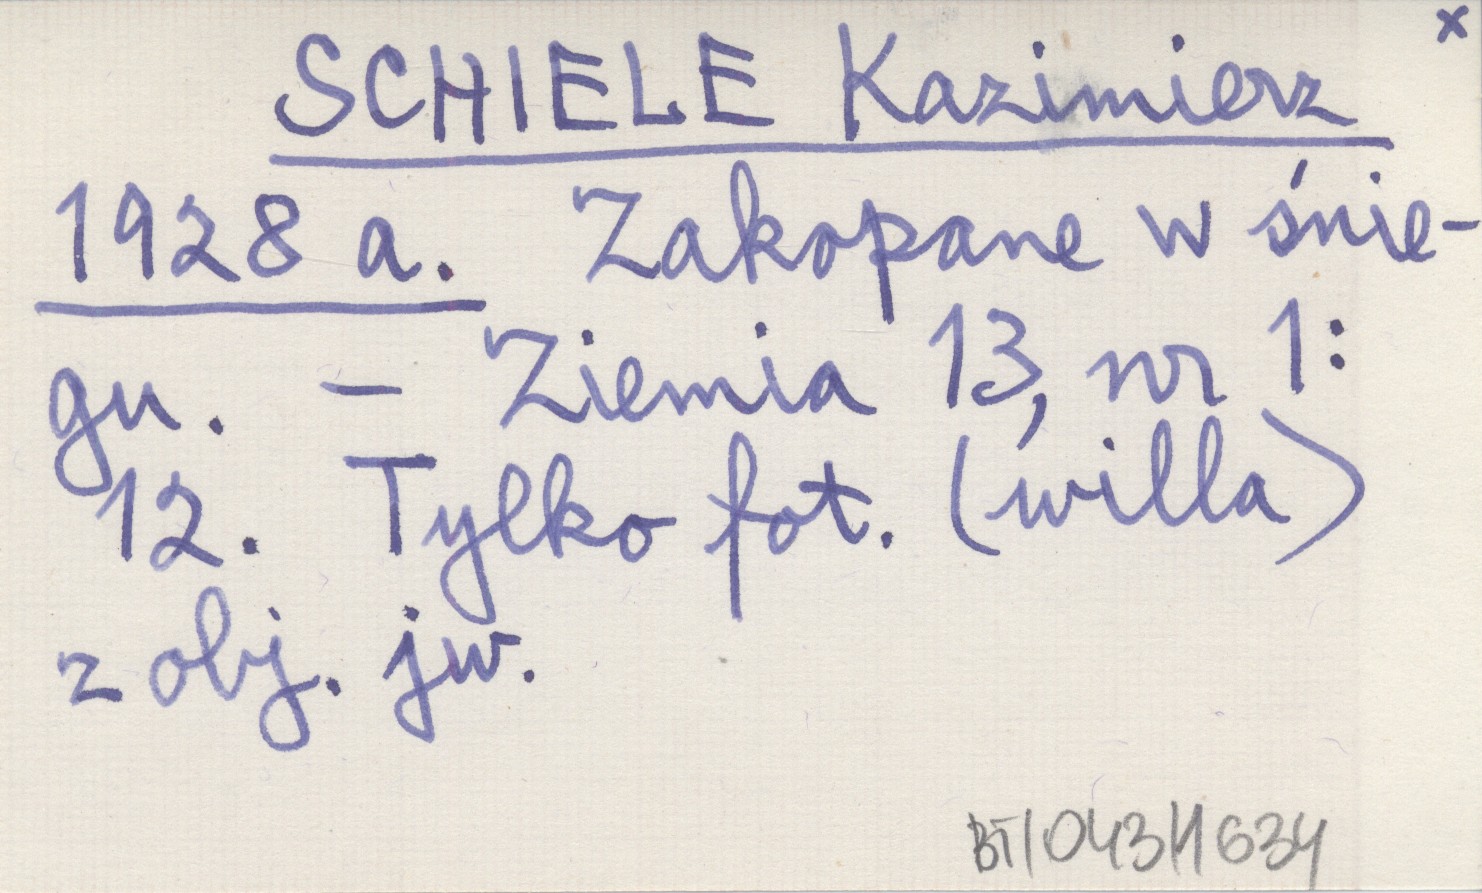 x
SCHIELE Kazimierz
1928 a. Zakopane w śnie-
gu. - Ziemia 13, nr 1:
12. Tylko fot. (willa)
z obj. jw.
BT/043/1634